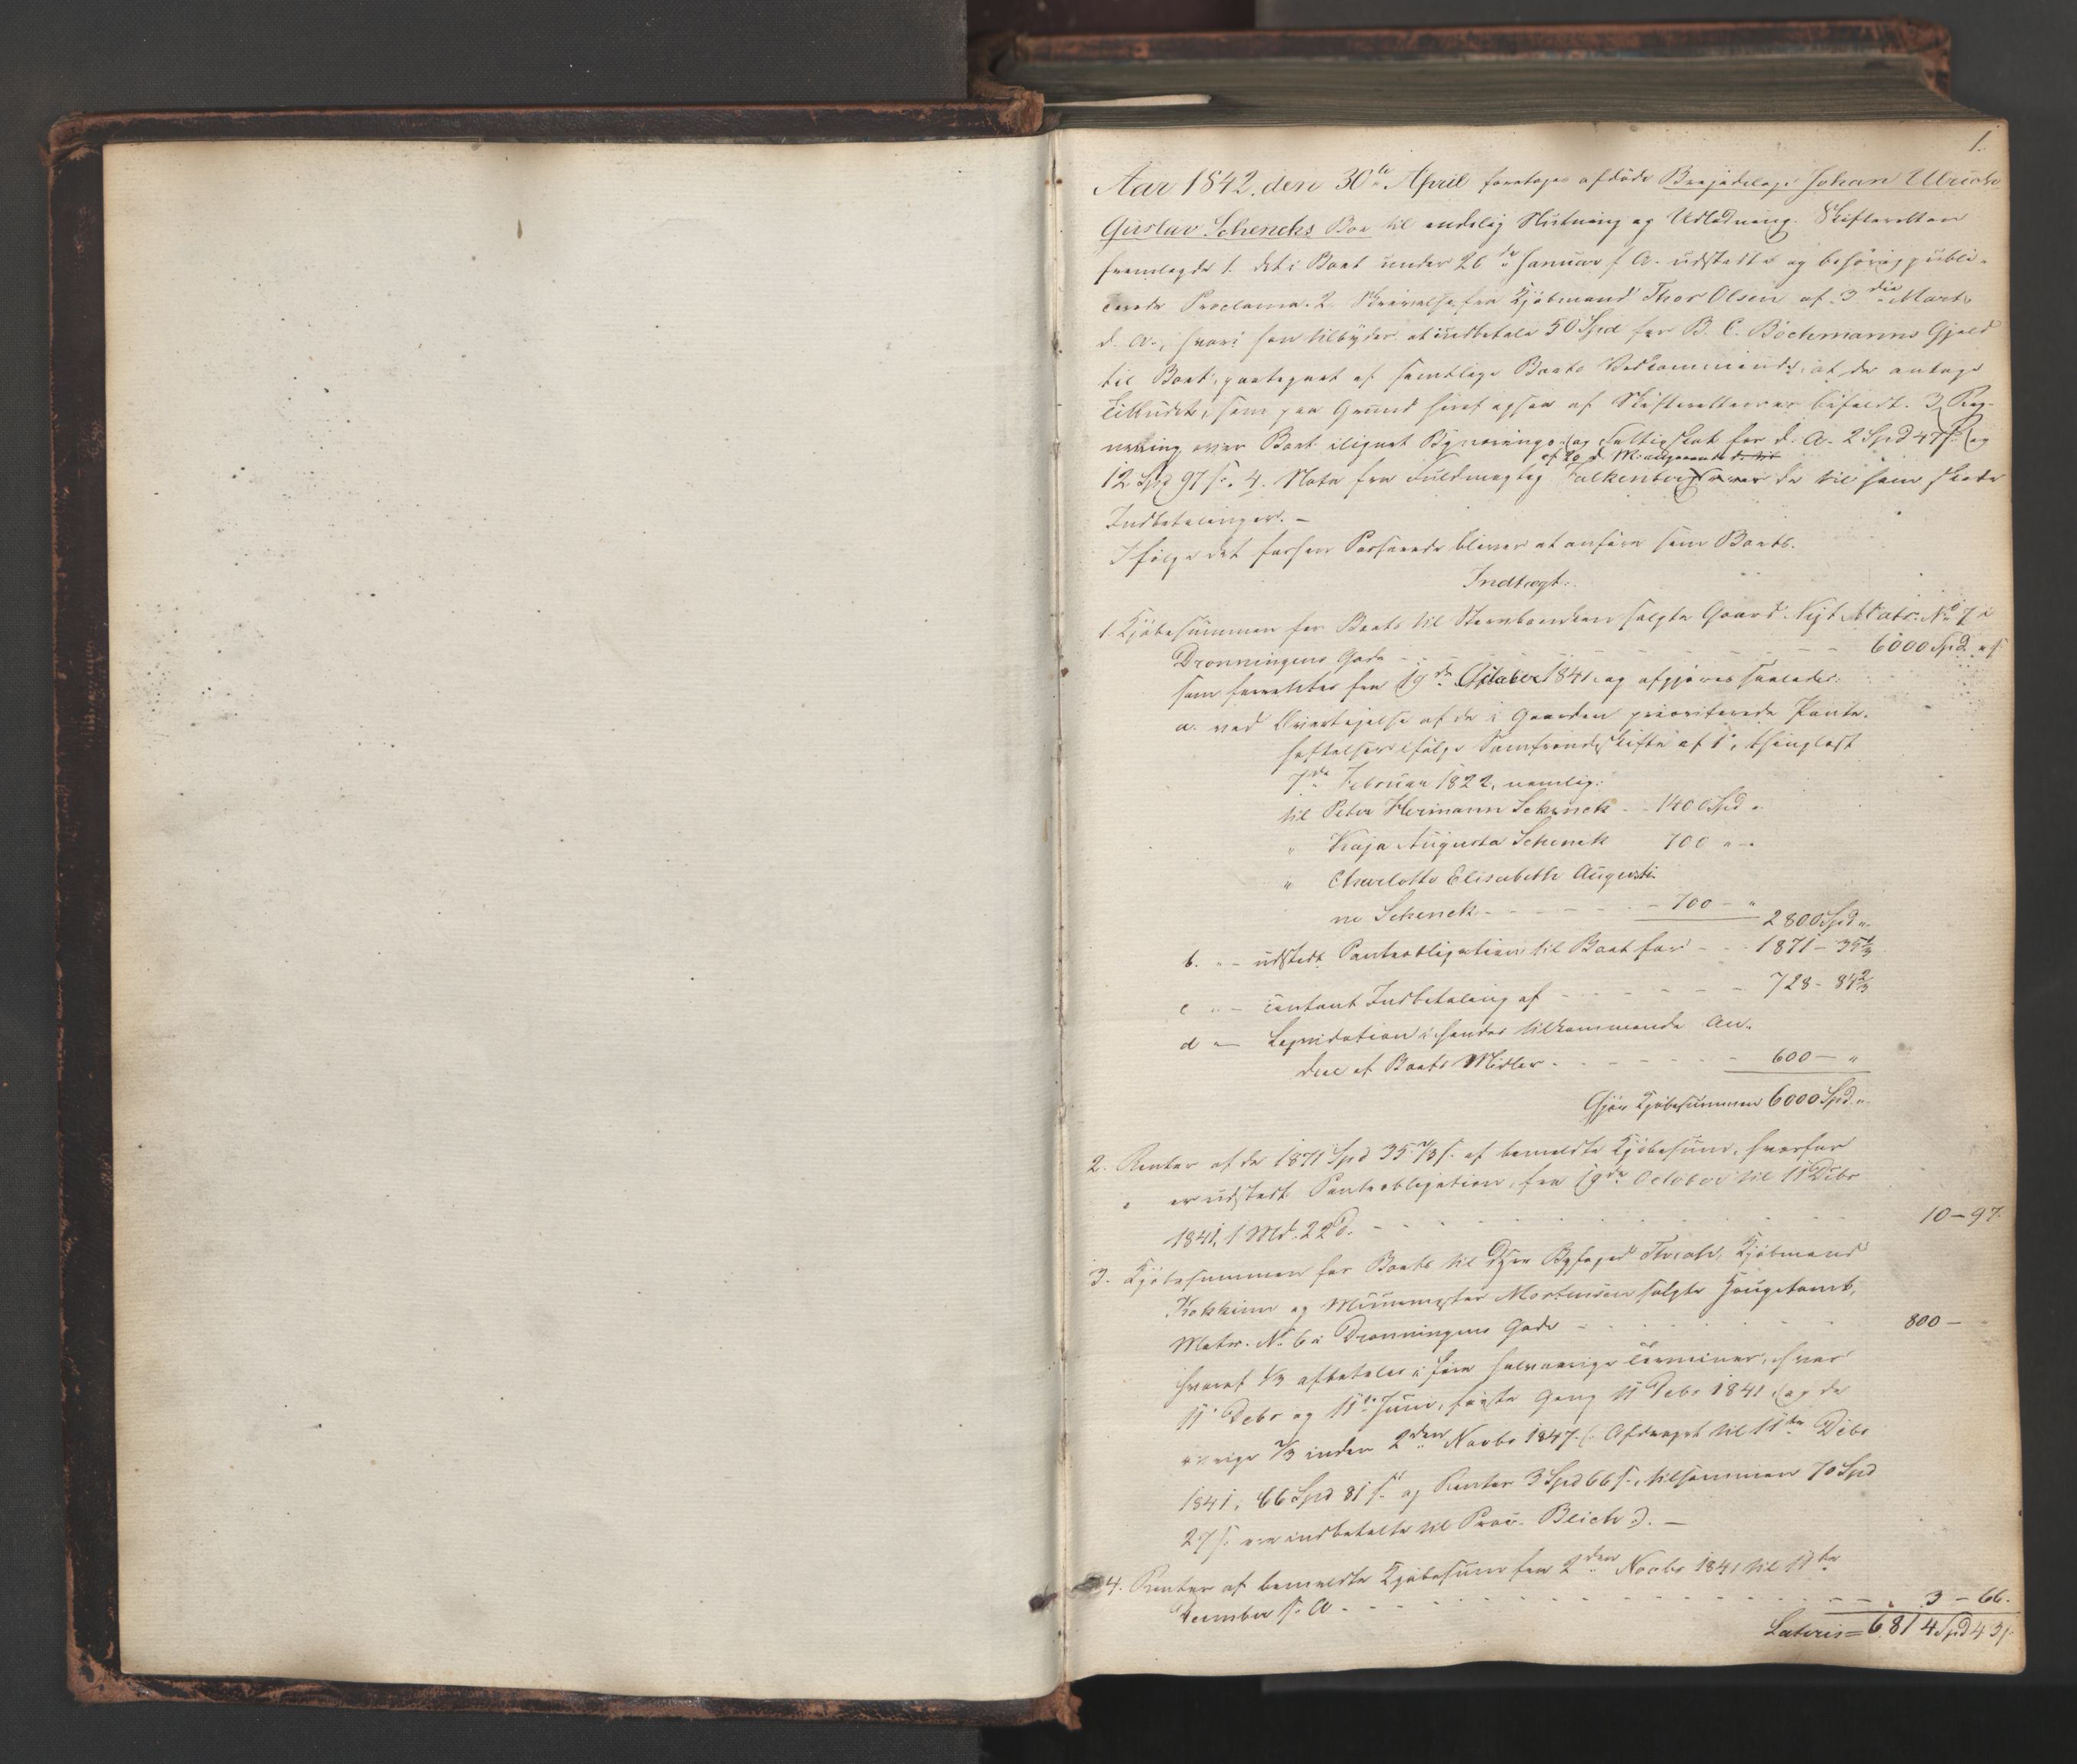 1.
Aar 1842. den 30te April foretoges afdöde Johan Ulrich
Gustav Schencks Boe til endelig Slutning og Udlodning. Skifteretten
fremlagde 1. det i Boet under 26de Januar f. A. udstedte og behörig publi-
cerede Proclama. 2. Skrivelse fra Kjöbmand Thor Olsen af 3die Marts
d. A., hvori han tilbyder at indbetale 50 Spd for B. C. Böckmanns Gjeld
til Boet, paategnet af samtlige Boets Vedkommende, at de antage
Tilbudet, som paa Grund heraf ogsaa af Skifteretten er bifaldt. 3. Reg-
ning over Boet ilignet Bynærings- og Fattigskat for d. A. 2 Spd 47 s. og
12 Spd 97 s. 4. Nota fra Fuldmægtig Falkenberg over de til ham skete
Indbetalinger. -
Ifölge det saaledes Passerede bliver at anföre som Boets.
Indtægt:
1. Kjöbesummen for Boets til solgte Gaard Nyt Matr. No 7 i
Dronningens Gade - - - 6000 Spd " s.
som forrentes fra 19de October 1841. og afgjöres saaledes:
a. ved Overtagelse af de i Gaarden prioriterede Pante-
heftelser ifölge Samfrændeskifte af 1., thinglæst
7de Februar 1822, nemlig:
til Peter Hermann Schenck - - 1400 Spd "
" Kaja Augusta Schenck 700 " -
" Charlotte Elisabeth Augusti-
ne Schenck - - - 700 - " 2800 Spd "
b. " - udstedt Panteobligation til Boet for - - 1871 - 35 1/3
c " - contant Indbetaling af - - - 728 - 84 2/3
d " - Liqvidation i hendes tilkommende An-
deel af Boets Midler - - - 600 - "
Gjör Kjöbesummen 6000 Spd "
2. Renter af de 1871 Spd 35 1/3 s. af bemeldte Kjöbesum, hvorfor
er udstedt Panteobligation, fra 19de October til 11te Debr
1841, 1 Md. 22 D. - - - 10 - 97.
3. Kjöbesummen for Boets til Byfoged Kjöbmand
og Muurmester Mortensen solgte Hougetomt,
Matr. No 6 i Dronningens Gade - - - 800 -
hvoraf 1/3 afbetales i fem halvaarige Terminer, hver
11. Debr og 11te Juni, förste Gang 11 Debr 1841 og de
övrige 2/3 inden 2den Novbr 1847. (: Afdraget til 11te Debr
1841, 66 Spd 81 s. og Renter 3 Spd 66 s., tilsammen 70 Spd
27 s. ere indbetalte til Proc. Bleich :). -
4. Renter af bemeldte Kjöbesum fra 2den Novbr 1841 til 11te
December s. A. - - - 3 - 66.
Lateris = 6814 Spd 43 s.